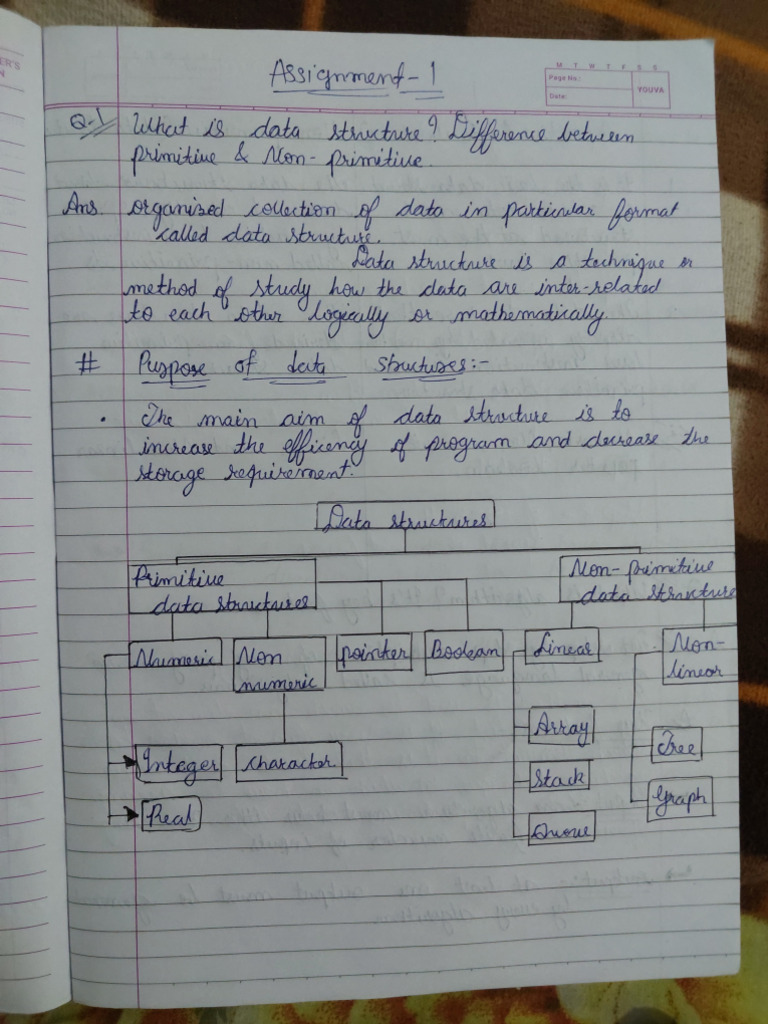 Assignment-1
M T W T F S S
Page No.:
Date:
YOUVA
Q.1 What is data structure? Difference between
primitive & Non-primitive.
Ans. organized collection of data in particular format
called data structure.
Data structure is a technique or
method of study how the data are inter-related
to each other logically or mathematically.
# Puspose of data structures:-
• The main aim of data structure is to
increase the efficency of program and decrease the
storage requirement.
Data structures
Primitive
data structures
Non-primitive
data structure
Numeric
Non
numeric
pointer
Boolean
Linear
Non-
linear
Array
Tree
Integer
Character
Stack
Graph
Real
Queue